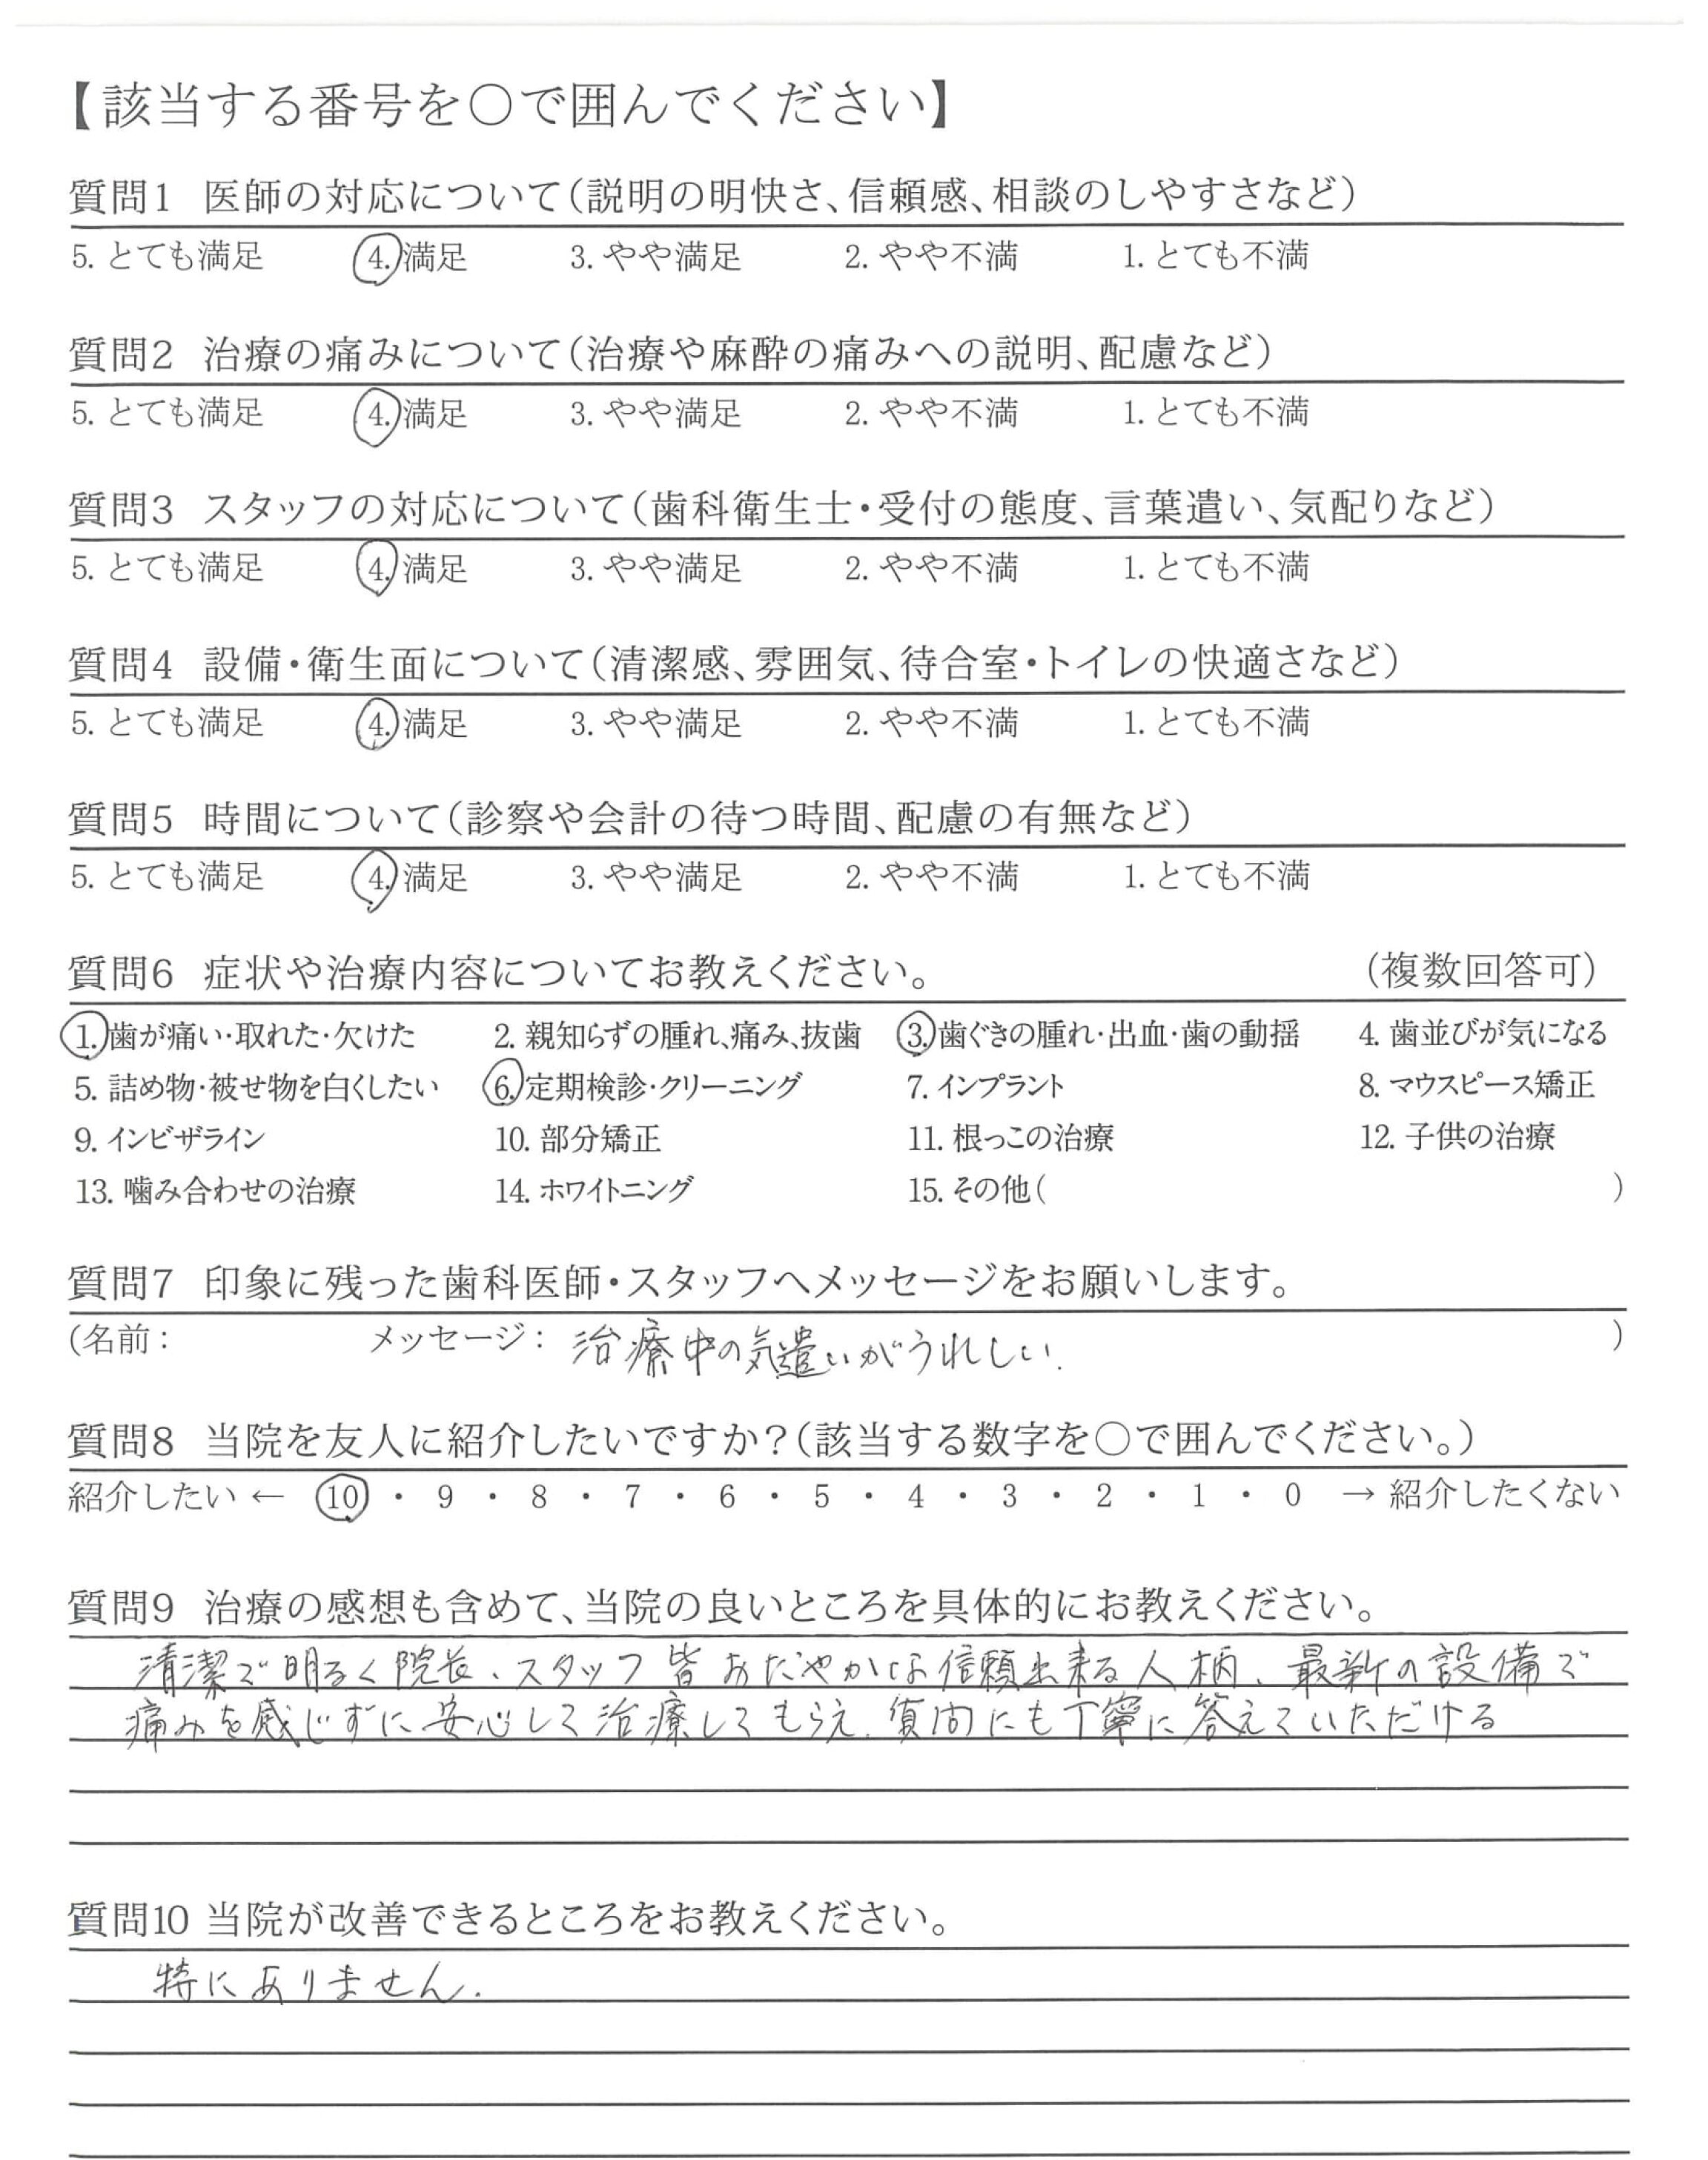 【該当する番号を○で囲んでください】
質問1 医師の対応について(説明の明快さ、信頼感、相談のしやすさなど)
5. とても満足 4. 満足 3. やや満足 2. やや不満 1. とても不満
質問2 治療の痛みについて(治療や麻酔の痛みへの説明、配慮など)
5. とても満足 4. 満足 3. やや満足 2. やや不満 1. とても不満
質問3 スタッフの対応について(歯科衛生士・受付の態度、言葉遣い、気配りなど)
5. とても満足 4. 満足 3. やや満足 2. やや不満 1. とても不満
質問4 設備・衛生面について(清潔感、雰囲気、待合室・トイレの快適さなど)
5. とても満足 4. 満足 3. やや満足 2. やや不満 1. とても不満
質問5 時間について(診察や会計の待つ時間、配慮の有無など)
5. とても満足 4. 満足 3. やや満足 2. やや不満 1. とても不満
質問6 症状や治療内容についてお教えください。 (複数回答可)
1. 歯が痛い・取れた・欠けた 2. 親知らずの腫れ、痛み、抜歯 3. 歯ぐきの腫れ・出血・歯の動揺 4. 歯並びが気になる
5. 詰め物・被せ物を白くしたい 6. 定期検診・クリーニング 7. インプラント 8. マウスピース矯正
9. インビザライン 10. 部分矯正 11. 根っこの治療 12. 子供の治療
13. 噛み合わせの治療 14. ホワイトニング 15. その他( )
質問7 印象に残った歯科医師・スタッフへメッセージをお願いします。
(名前: メッセージ: 治療中の気遣いがうれしい. )
質問8 当院を友人に紹介したいですか?(該当する数字を○で囲んでください。)
紹介したい ← 10 ・ 9 ・ 8 ・ 7 ・ 6 ・ 5 ・ 4 ・ 3 ・ 2 ・ 1 ・ 0 → 紹介したくない
質問9 治療の感想も含めて、当院の良いところを具体的にお教えください。
清潔で明るく院長、スタッフ皆おだやかな信頼出来る人柄、最新の設備で
痛みを感じずに安心して治療してもらえ、質問にも丁寧に答えていただける
質問10 当院が改善できるところをお教えください。
特にありません.